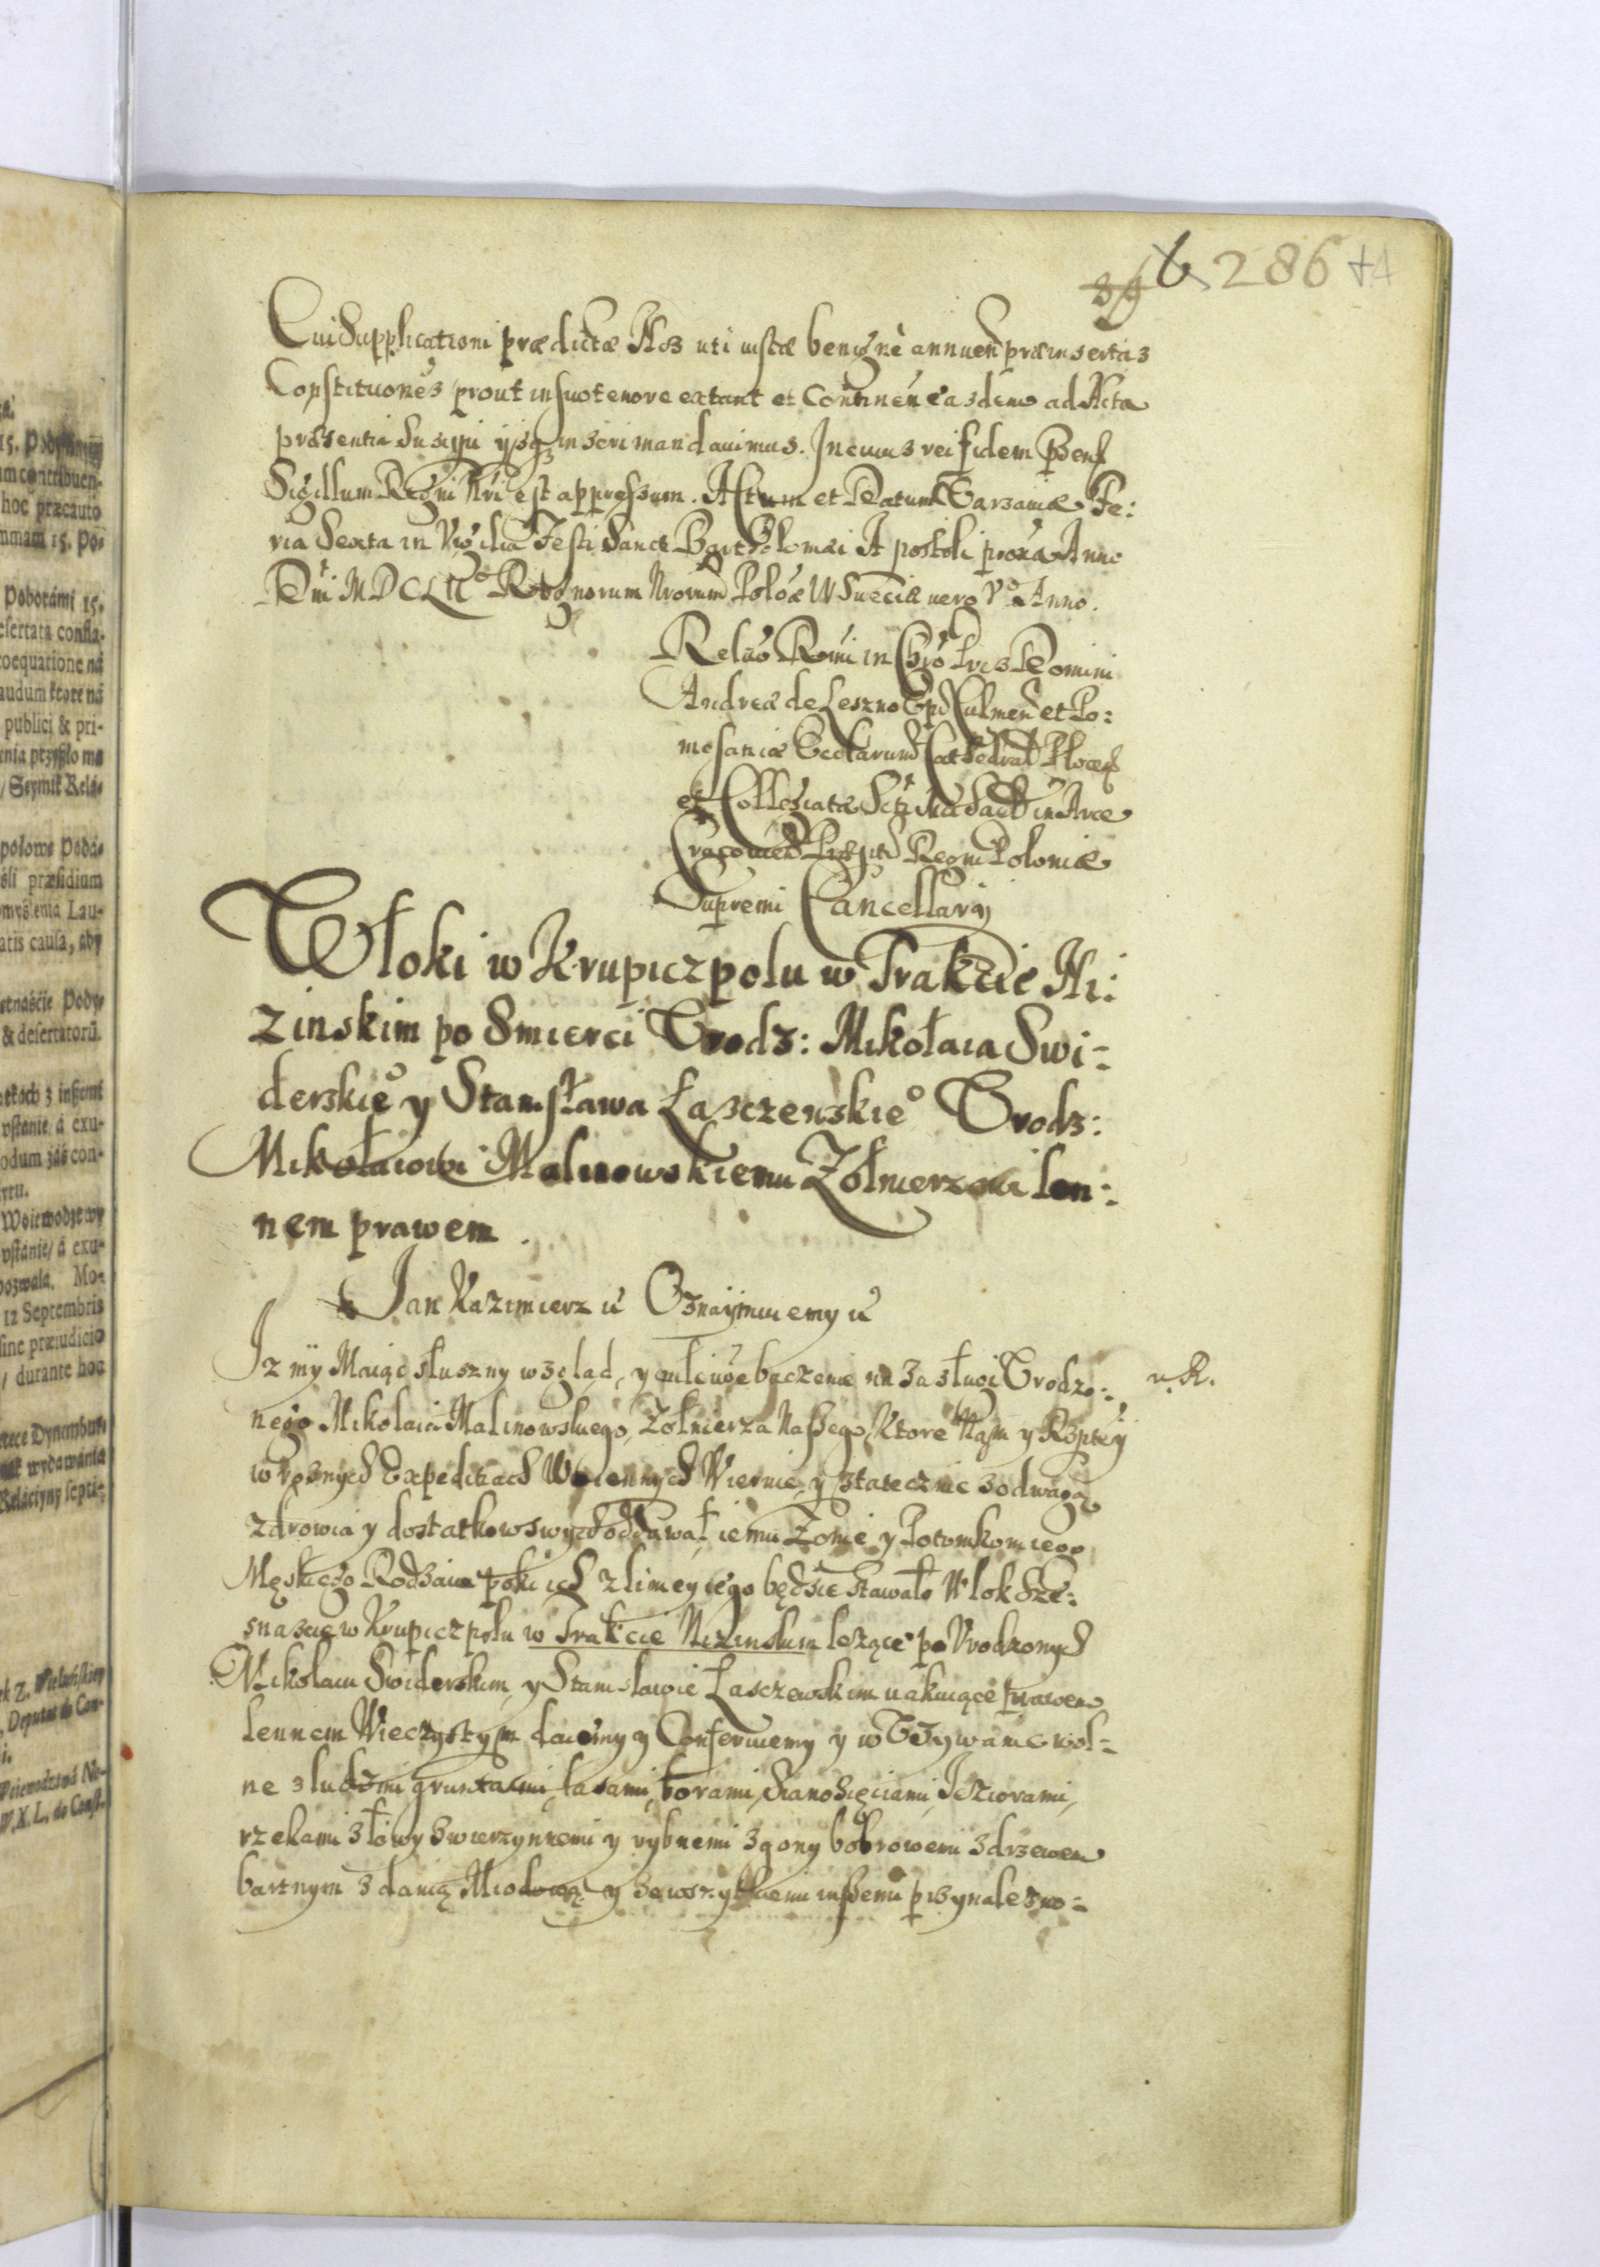 286
Cui Supplicationi prædictæ Nos uti iustæ benignè annuen præinsertas
Constitutiones prout in suo tenore extant et continen easdem ad Acta
præsentia suscipi ijsq inscri mandauimus. In cuius rei fidem Præsen
Sigillum Regni Nri est appressum. Actum et Datum Varsauiæ Fe:
ria Sexta in Vigilia Festi Sancti Bartholomæi Apostoli proxa Anno
Dni MDCLII Regnorum Nrorum Poloæ IV Sueciæ uero Vo Anno.
Relao Rmi in Chro Pris Domini
Andreæ de Leszno Epi Culmen et Po:
mesaniæ Ecclarum Cathedral Plocen
et Collegiatæ Scti Michael in Arce
Cracouien Præpti Regni Poloniæ
Supremi Cancellarij
Włoki w Krupiczpolu w Trakcie Ni:
zinskim po Smierci Vrodz: Mikołaia Swi:
derskieo y Stanisława Łasczenskieo Vrodz:
Mikołaiowi Malinowskiemu Zołnierzowi len:
nem prawem.
Jan Kazimierz & Oznaÿmuiemy &
Iz mÿ Maiąc słuszny wzgląd, y mlciwe baczenie na zasługi Vrodzo:
n. R.
nego Mikołaia Malinowskiego, Zołnierza Naszego, Ktore Nam y Rzptey
w roznych Expeditiach Woiennych Wiernie, y statecznie z odwagą
zdrowia y dostatkow swych oddawał iemu Zonie y Potomkom iego
Męskiego Rodzaiu poki ich z limey iego będzie stawało Włok Sze:
snascie w Krupiczpolu w Trakcie Nizinskim lezące po Vrodzonych
Mikołaiu Swiderskim, y Stanisławie Łasczewskim uakuiące prawem
lennem Wieczystym daiemy y Conferuiemy y w Vzywanie wol:
ne z ludzmi gruntami, lasami, borami, Sianozęciami, Ieziorami,
rzekami z łowy zwierzynnemi y rybnemi z gony bobrowemi z drzewem
bartnym z danią Miodową y ze wszystkiemi inszemi przynalezno: